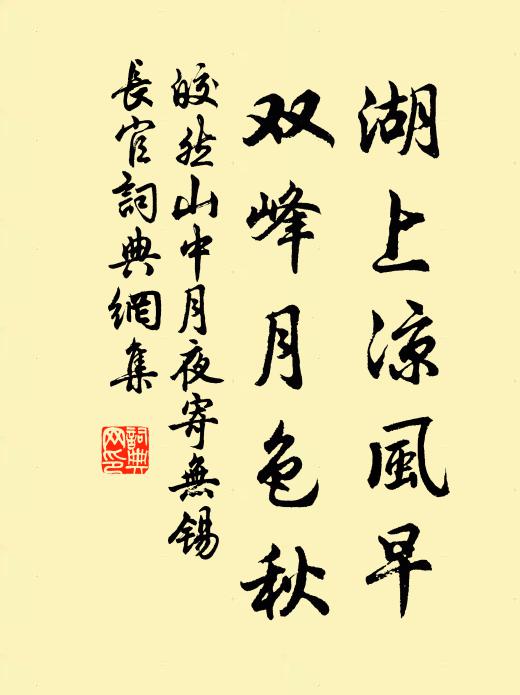 湖上凉風早
双峰月色秋
皎然山中月夜寄無錫
長官詞典網集
詞典
网印